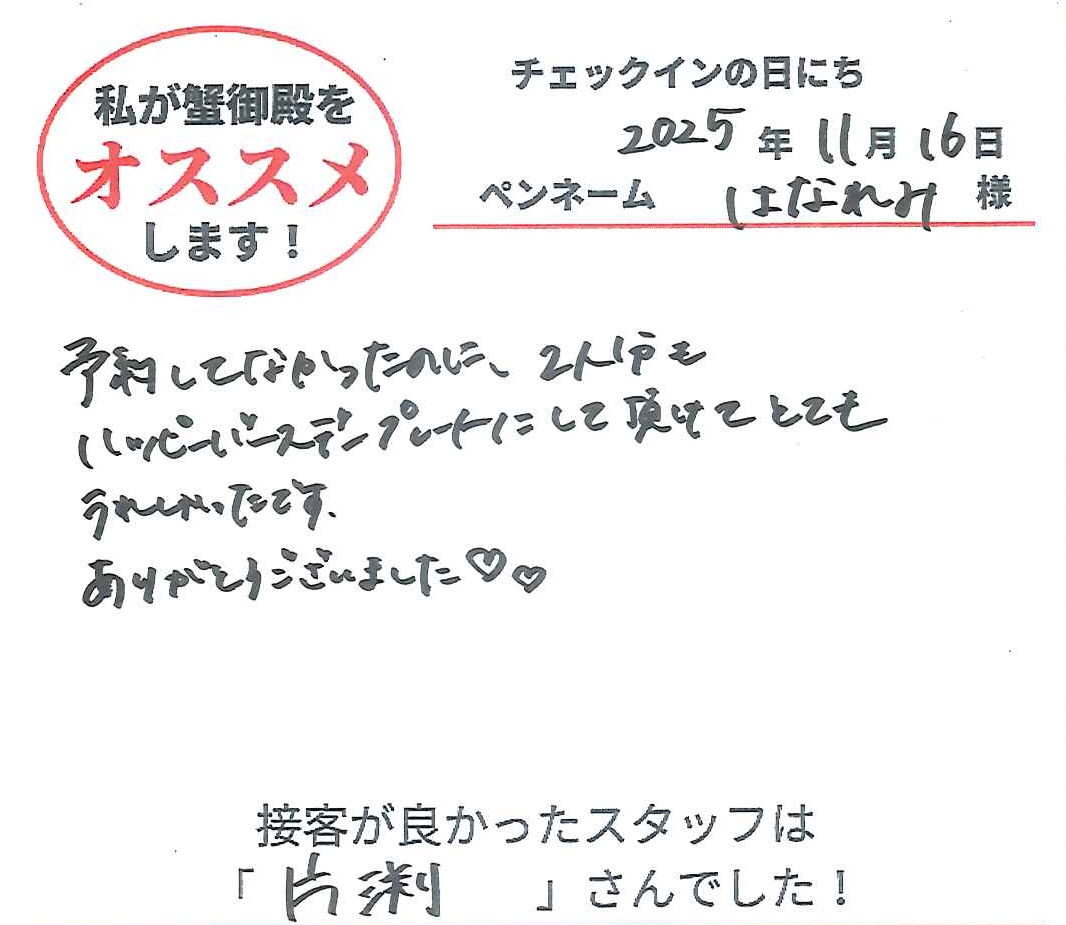 私が蟹御殿を
オススメ
します！
チェックインの日にち
2025年11月16日
ペンネーム はなれみ 様
予約してなかったのに、2人分も
ハッピーバースデープレートにして頂けてとても
うれしかったです。
ありがとうございました♡♡
接客が良かったスタッフは
「片渕」さんでした！